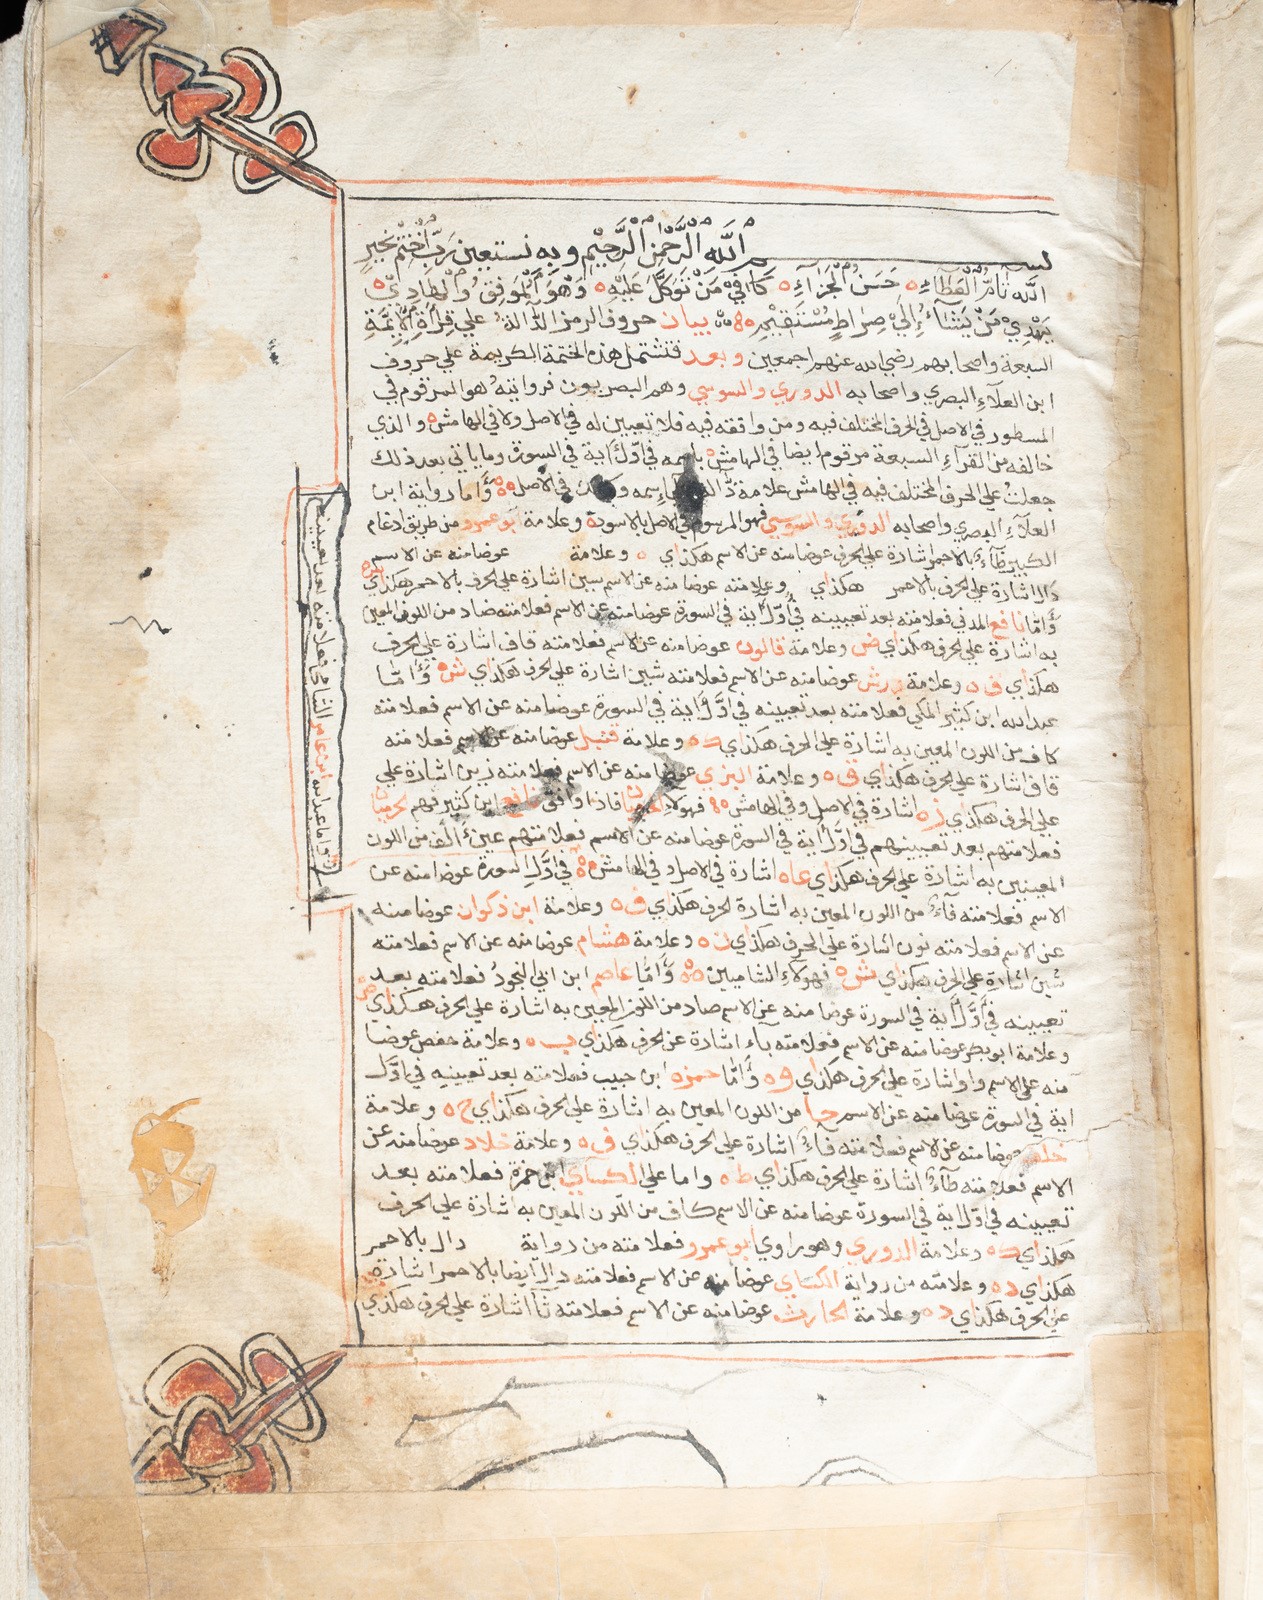 بسم الله الرحمن الرحيم وبه نستعين رب اختم بخير
الله تام العطاء حسن الجزاء كافي من توكل عليه وهو الموفق والهادي
يهدي من يشاء إلي صراط مستقيم بيان حروف الرمز الدالة علي قراءة الأئمة
السبعة واصحابهم رضي الله عنهم اجمعين وبعد فتشتمل هذه الختمة الكريمة علي حروف
ابن العلاء البصري واصحابه الدوري والسوسي وهم البصريون فروايته هو المرقوم في
المسطور في الاصل في الحرف المختلف فيه ومن وافقه فيه فلا تعيين له في الاصل ولا في الهامش والذي
خالفه من القراء السبعة مرقوم ايضا في الهامش باسمه في اول اية في السورة وما ياتي بعد ذلك
جعلت علي الحرف المختلف فيه في الهامش علامة في الاصل واما رواية ابن
العلاء البصري واصحابه الدوري والسوسي فهو المرسوم في الاصل بالاسودة وعلامة ابو عمرو من طريق ادغام
الكبير طاء بالاحمر اشارة علي الحرف عوضا منه عن الاسم هكذاي وعلامة عوضا منه عن الاسم
دال اشارة علي الحرف بالاحمر هكذاي وعلامته عوضا منه عن الاسم سين اشارة علي الحرف بالاحمر هكذاي
واما نافع المدني فعلامته بعد تعيينه في اول اية في السورة عوضا منه عن الاسم فعلامته ضاد من اللون المعين
به اشارة علي الحرف هكذاي ض وعلامة قالون عوضا منه عن الاسم فعلامته قاف اشارة علي الحرف
هكذاي ق وعلامة ورش عوضا منه عن الاسم فعلامته شين اشارة علي الحرف هكذاي ش واما
عبد الله ابن كثير المكي فعلامته بعد تعيينه في اول اية في السورة عوضا منه عن الاسم فعلامته
كاف من اللون المعين به اشارة علي الحرف هكذاي ك وعلامة قنبل عوضا منه عن الاسم فعلامته
قاف اشارة علي الحرف هكذاي ق وعلامة البزي عوضا منه عن الاسم فعلامته زين اشارة علي
علي الحرف هكذاي ز اشارة في الاصل وفي الهامش فهولاء فاذا وافق نافع ابن كثير فهم حرميان
فعلامتهم بعد تعيينهم في اول اية في السورة عوضا منه عن الاسم فعلامتهم عين الف من اللون
المعينين به اشارة علي الحرف هكذاي عا اشارة في الاصل وفي الهامش في اول السورة عوضا منه عن
الاسم فعلامته فاء من اللون المعين به اشارة الحرف هكذاي ف وعلامة ابن ذكوان عوضا منه
عن الاسم فعلامته نون اشارة علي الحرف هكذاي ن وعلامة هشام عوضا منه عن الاسم فعلامته
شين اشارة علي الحرف هكذاي ش فهولاء الشاميين واما عاصم ابن ابي النجود فعلامته بعد
تعيينه في اول اية في السورة عوضا منه عن الاسم صاد من اللون المعين به اشارة علي الحرف هكذاي ص
وعلامة ابو بكر عوضا منه عن الاسم فعلامته باء اشارة عن الحرف هكذاي ب وعلامة حفص عوضا
منه علي الاسم واو اشارة علي الحرف هكذاي و واما حمزه ابن حبيب فعلامته بعد تعيينه في اول
اية في السورة عوضا منه عن الاسم حا من اللون المعين به اشارة علي الحرف هكذاي ح وعلامة
خلف عوضا منه عن الاسم فعلامته فاء اشارة علي الحرف هكذاي ف وعلامة خلاد عوضا منه عن
الاسم فعلامته طاء اشارة علي الحرف هكذاي ط واما علي الكساي ابن حمزة فعلامته بعد
تعيينه في اول اية في السورة عوضا منه عن الاسم كاف من اللون المعين به اشارة علي الحرف
هكذاي ك وعلامة الدوري وهو راوي ابو عمرو فعلامته من رواية دال بالاحمر
هكذاي د وعلامته من رواية الكساي عوضا منه عن الاسم فعلامته دال ايضا بالاحمر اشارة
علي الحرف هكذاي د وعلامة الحارث عوضا منه عن الاسم فعلامته تا اشارة علي الحرف هكذي
واما عبد الله ابن عامر الشامي فعلامته بعد تعيينه